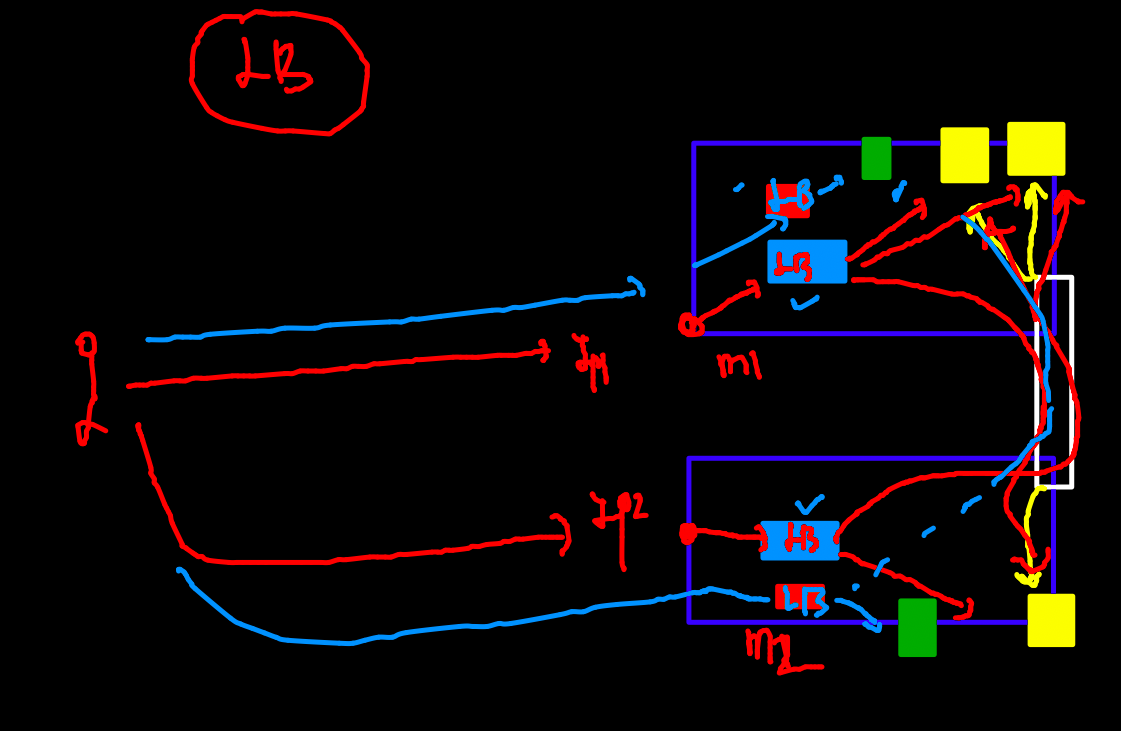 LB
LB
LB
m1
IP1
IP2
LB
LB
m2